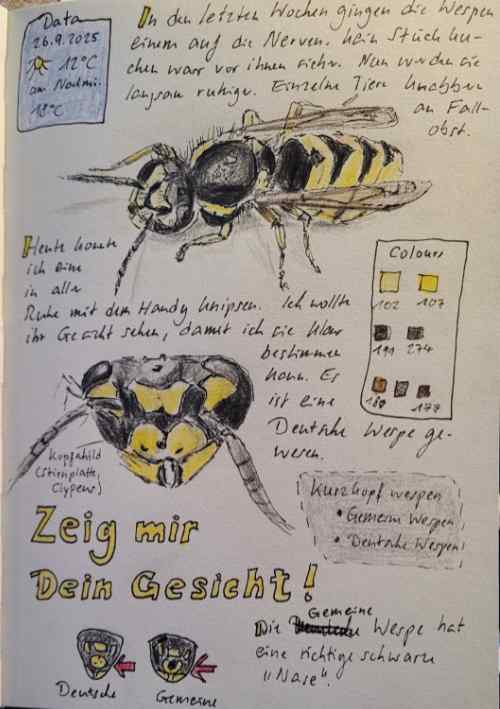 Data
26.9.2025
12°C
am Nachmi.
18°C
In den letzten Wochen gingen die Wespen
einem auf die Nerven. Kein Stück Ku-
chen war vor ihnen sicher. Nun werden sie
langsam ruhiger. Einzelne Tiere knabbern
an Fall-
obst.
Heute konnte
ich eine
in aller
Ruhe mit dem Handy knipsen. Ich wollte
ihr Gesicht sehen, damit ich sie klar
bestimmen
kann. Es
ist eine
Deutsche Wespe ge-
wesen.
Colours
102 107
199 274
177
Kopfschild
(Stirnplatte,
Clypeus)
Kurzkopfwespen
• Gemeine Wespen
• Deutsche Wespen
Zeig mir
Dein Gesicht!
Deutsche
Gemeine
Die Gemeine Wespe hat
eine richtige schwarze
„Nase".